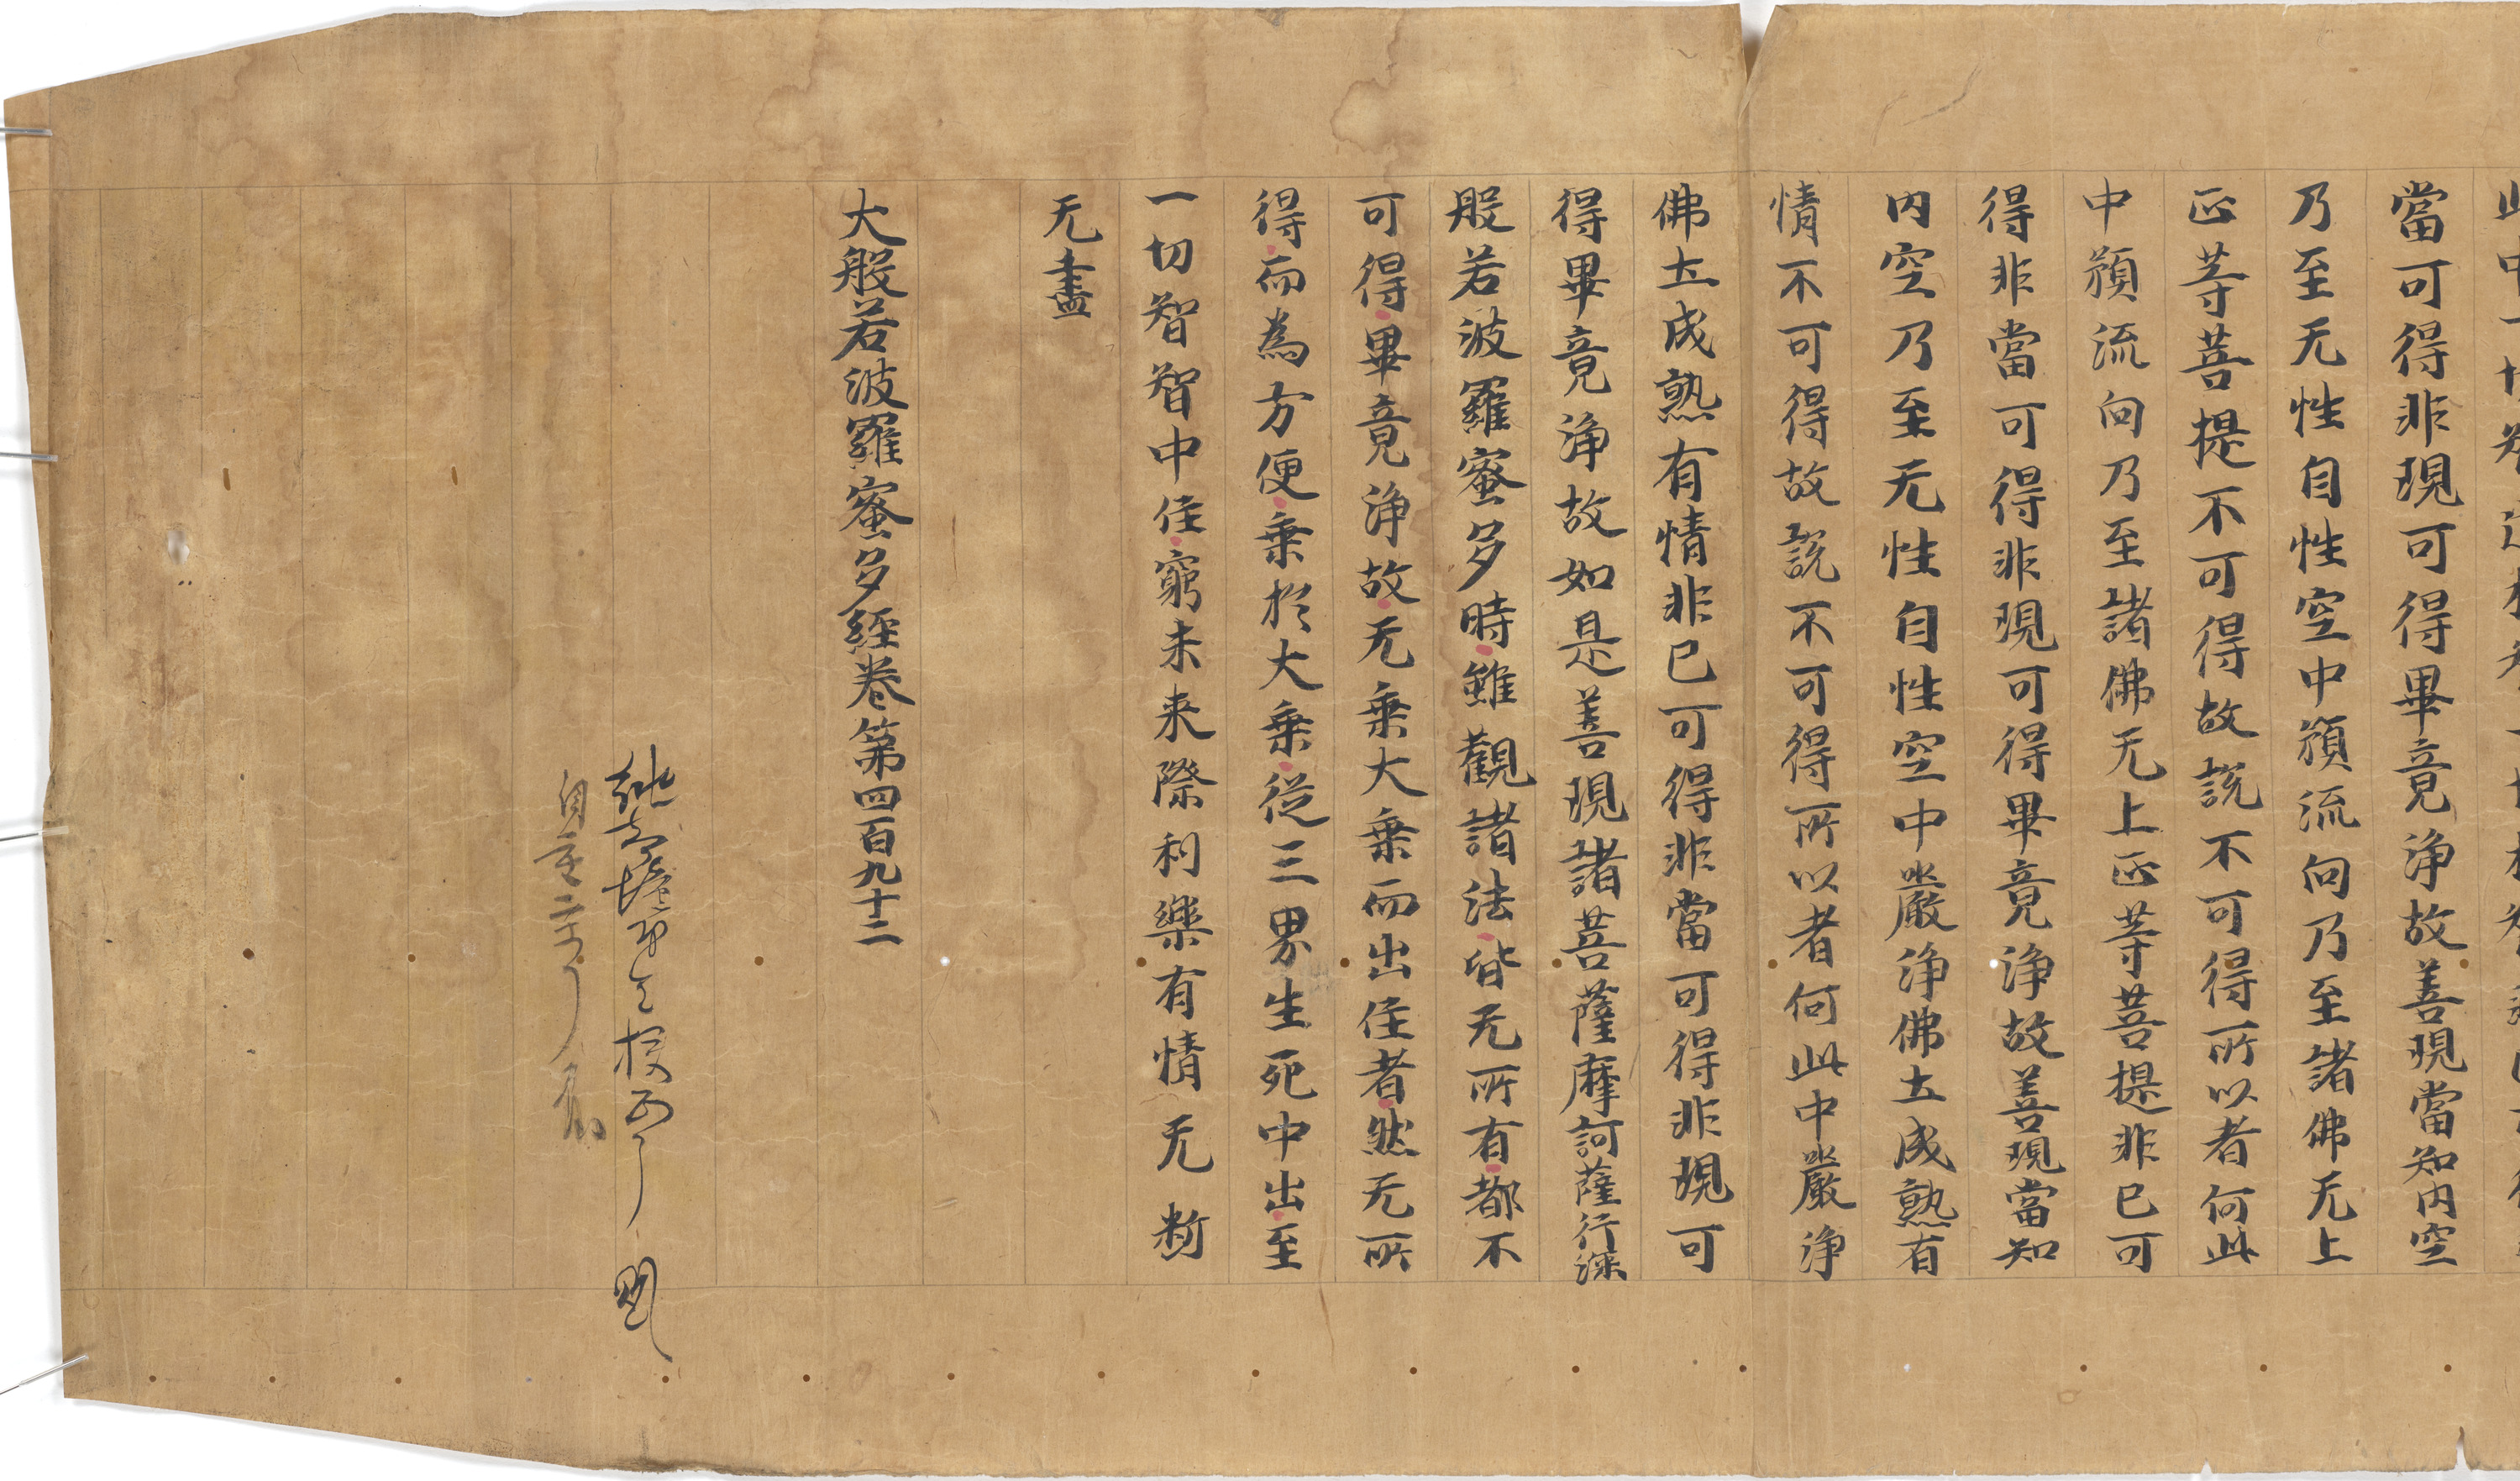 當可得非現可得畢竟淨故善現當知内空
乃至无性自性空中預流向乃至諸佛无上
正等菩提不可得故說不可得所以者何此
中預流向乃至諸佛无上正等菩提非已可
得非當可得非現可得畢竟淨故善現當知
内空乃至无性自性空中嚴淨佛土成熟有
情不可得故說不可得所以者何此中嚴淨
佛土成熟有情非已可得非當可得非現可
得畢竟淨故如是善現諸菩薩摩訶薩行深
般若波羅蜜多時雖觀諸法皆无所有都不
可得畢竟淨故无乘大乘而出住者然无所
得而為方便乘於大乘從三界生死中出至
一切智智中住窮未来際利樂有情无断
无盡
大般若波羅蜜多經卷第四百九十二